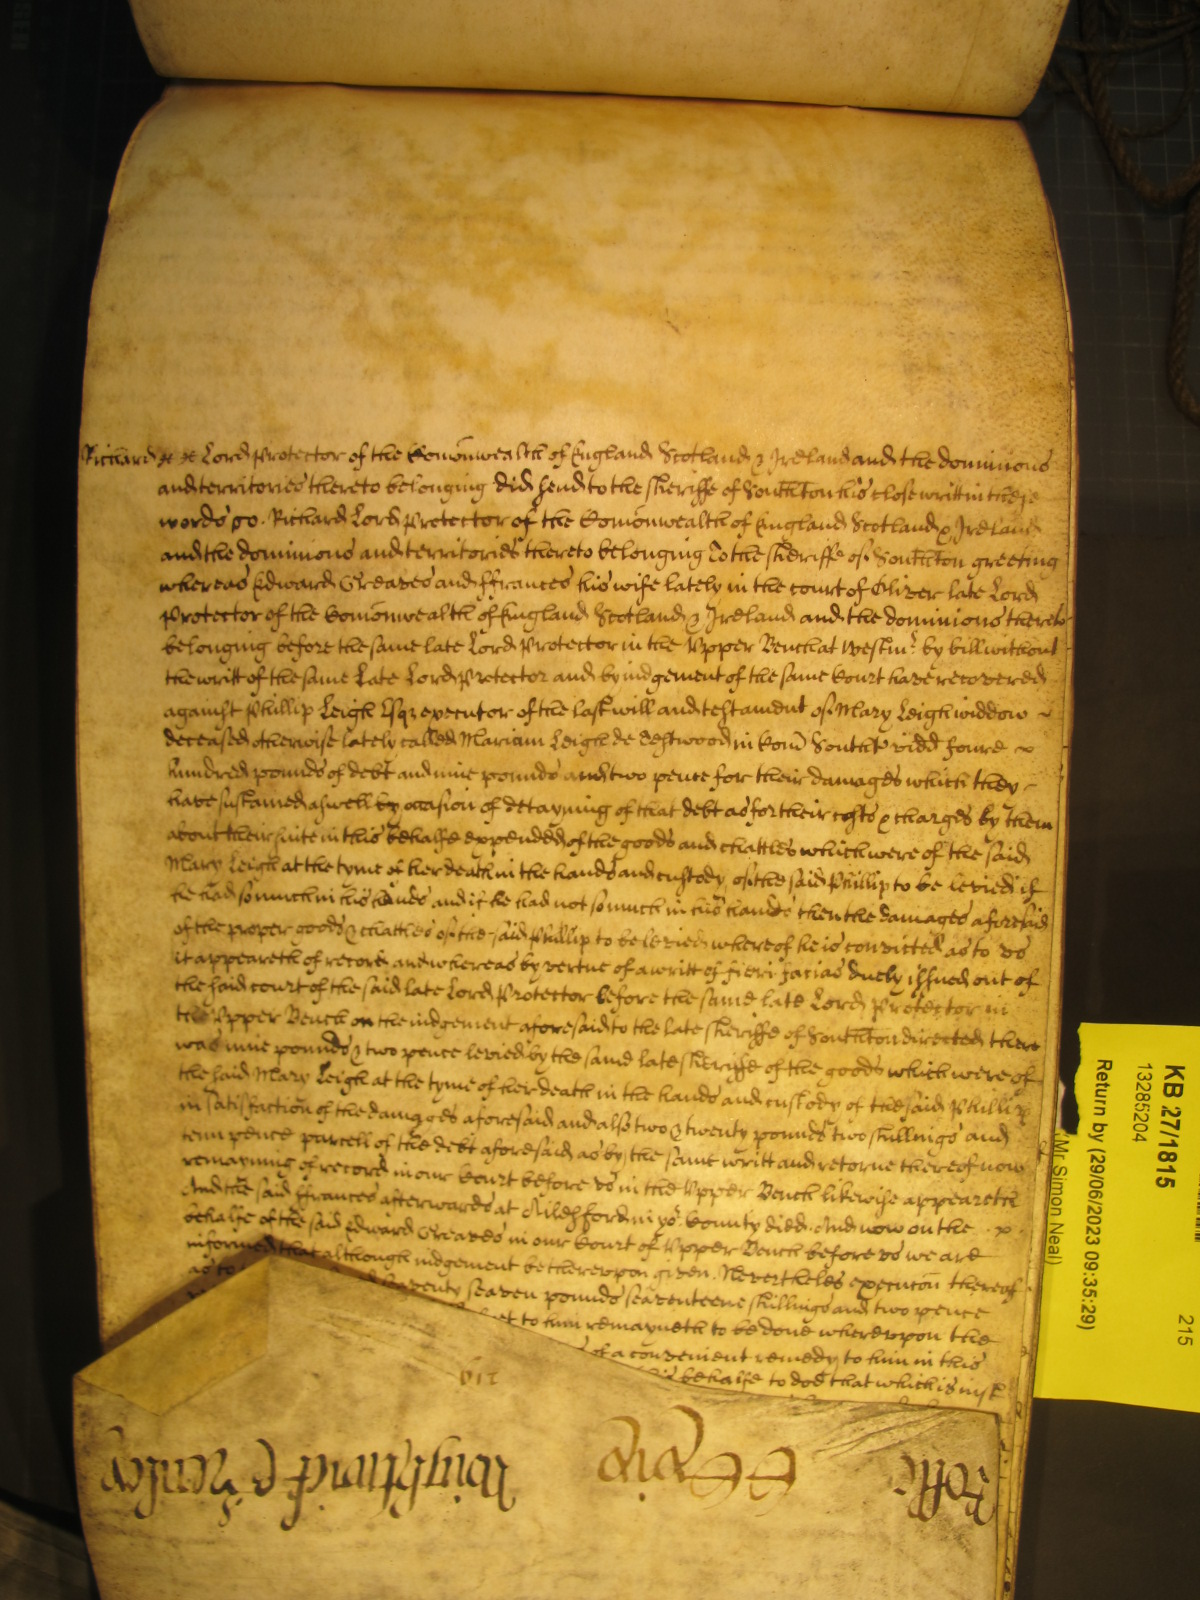 Richard &c &c Lord Protector of the Com̄onwealth of England Scotland & Ireland and the dominions
and territories thereto belonging did send to the sheriffe of South̄ton his close writt in these
words so. Richard Lord Protector of the Com̄onwealth of England Scotland & Ireland
and the dominions and territories thereto belonging To the sheriffe of South̄ton greeting
whereas Edward Greaves and ffrances his wife lately in the court of Oliver late Lord
Protector of the Com̄onwealth of England Scotland & Ireland and the dominions thereto
belonging before the same late Lord Protector in the Vpper Bench at Westmr by bill without
the writt of the same Late Lord Protector and by iudgement of the same Court have recovered
against Phillip Leigh Esqz executor of the last will and testament of Mary Leigh widdow
deceased otherwise lately called Mariam Leigh de in Com̄ South̄t vidd foure
hundred pounds of debt and nine pounds and two pence for their damages which they
have sustained aswell by occasion of detayning of that debt as for their costs & charges by them
about their suite in this behalfe expended of the goods and chattles which were of the said
Mary Leigh at the tyme of her death in the hands and custody of the said Phillip to be levied if
he had so much in his hands and if he had not so much in his hands then the damages aforesaid
of the proper goods & chattles of the said Phillip to be levied whereof he is convicted as to vs
it appeareth of record and whereas by vertue of a writt of fieri facias duely issued out of
the said court of the said late Lord Protector before the same late Lord Protector in
the Vpper Bench on the iudgement aforesaid to the late sheriffe of South̄ton directed there
was nine pounds & two pence levied by the same late sheriffe of the goods which were of
the said Mary Leigh at the tyme of her death in the hands and custody of the said Phillip
in satisfaction of the damages aforesaid and also two & twenty pounds two shillings and
tenn pence parcell of the debt aforesaid as by the same writt and retorne thereof now
remayning of record in our Court before vs in the Vpper Bench likewise appeareth
And the said ffrances afterwards at in yor County died. And now on the
behalfe of the said Edward Greaves in our Court of Vpper Bench before vs we are
informed that although iudgement be therevpon given. Nevertheles execuc̄on thereof
as to seaventy seaven pounds seaventeene shillings and two pence
yet to him remayneth to be done wherevpon the
of a convenient remedy to him in this
behalfe to doe that which is iust
Rolle
KB 27/1815
13285204
Return by (29/06/2023 09:35:29)
(Mr Simon Neal)
215